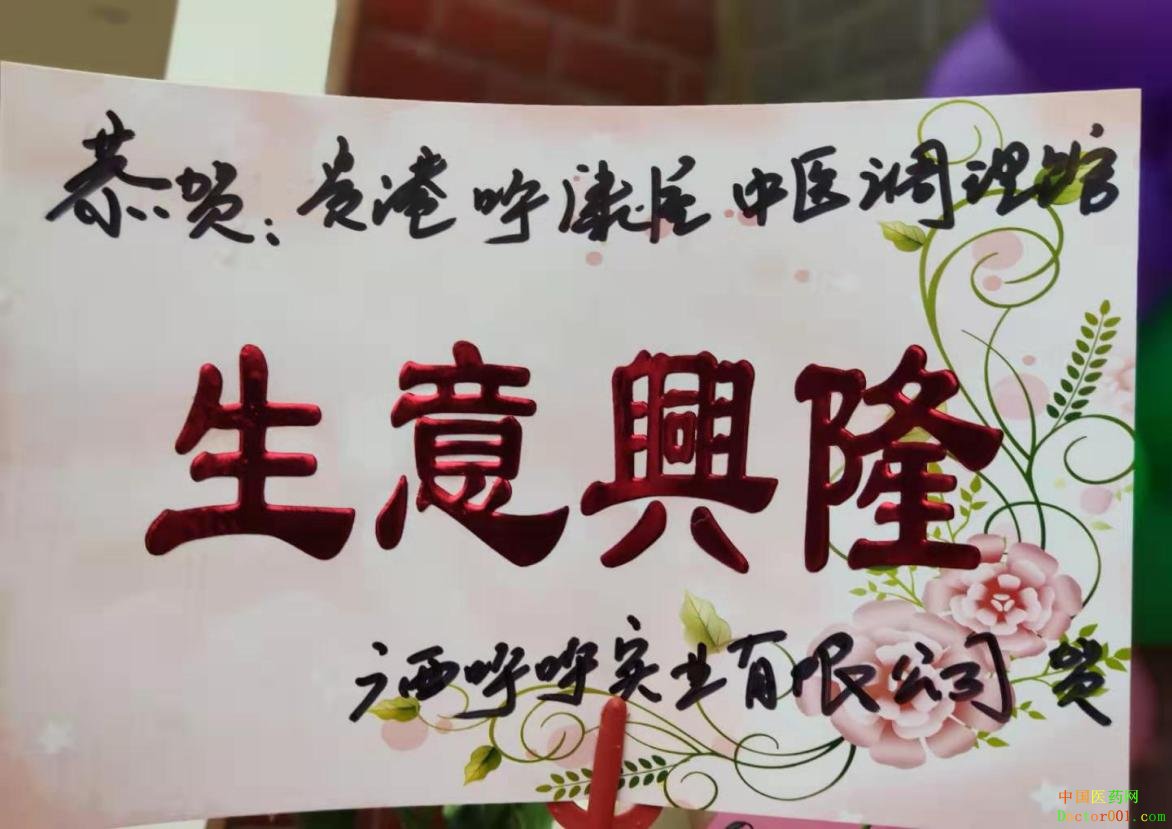 恭贺:贵港哗康居中医调理馆
生意興隆
广西哗哗实业有限公司 贺
中国医药网
Doctor001.com